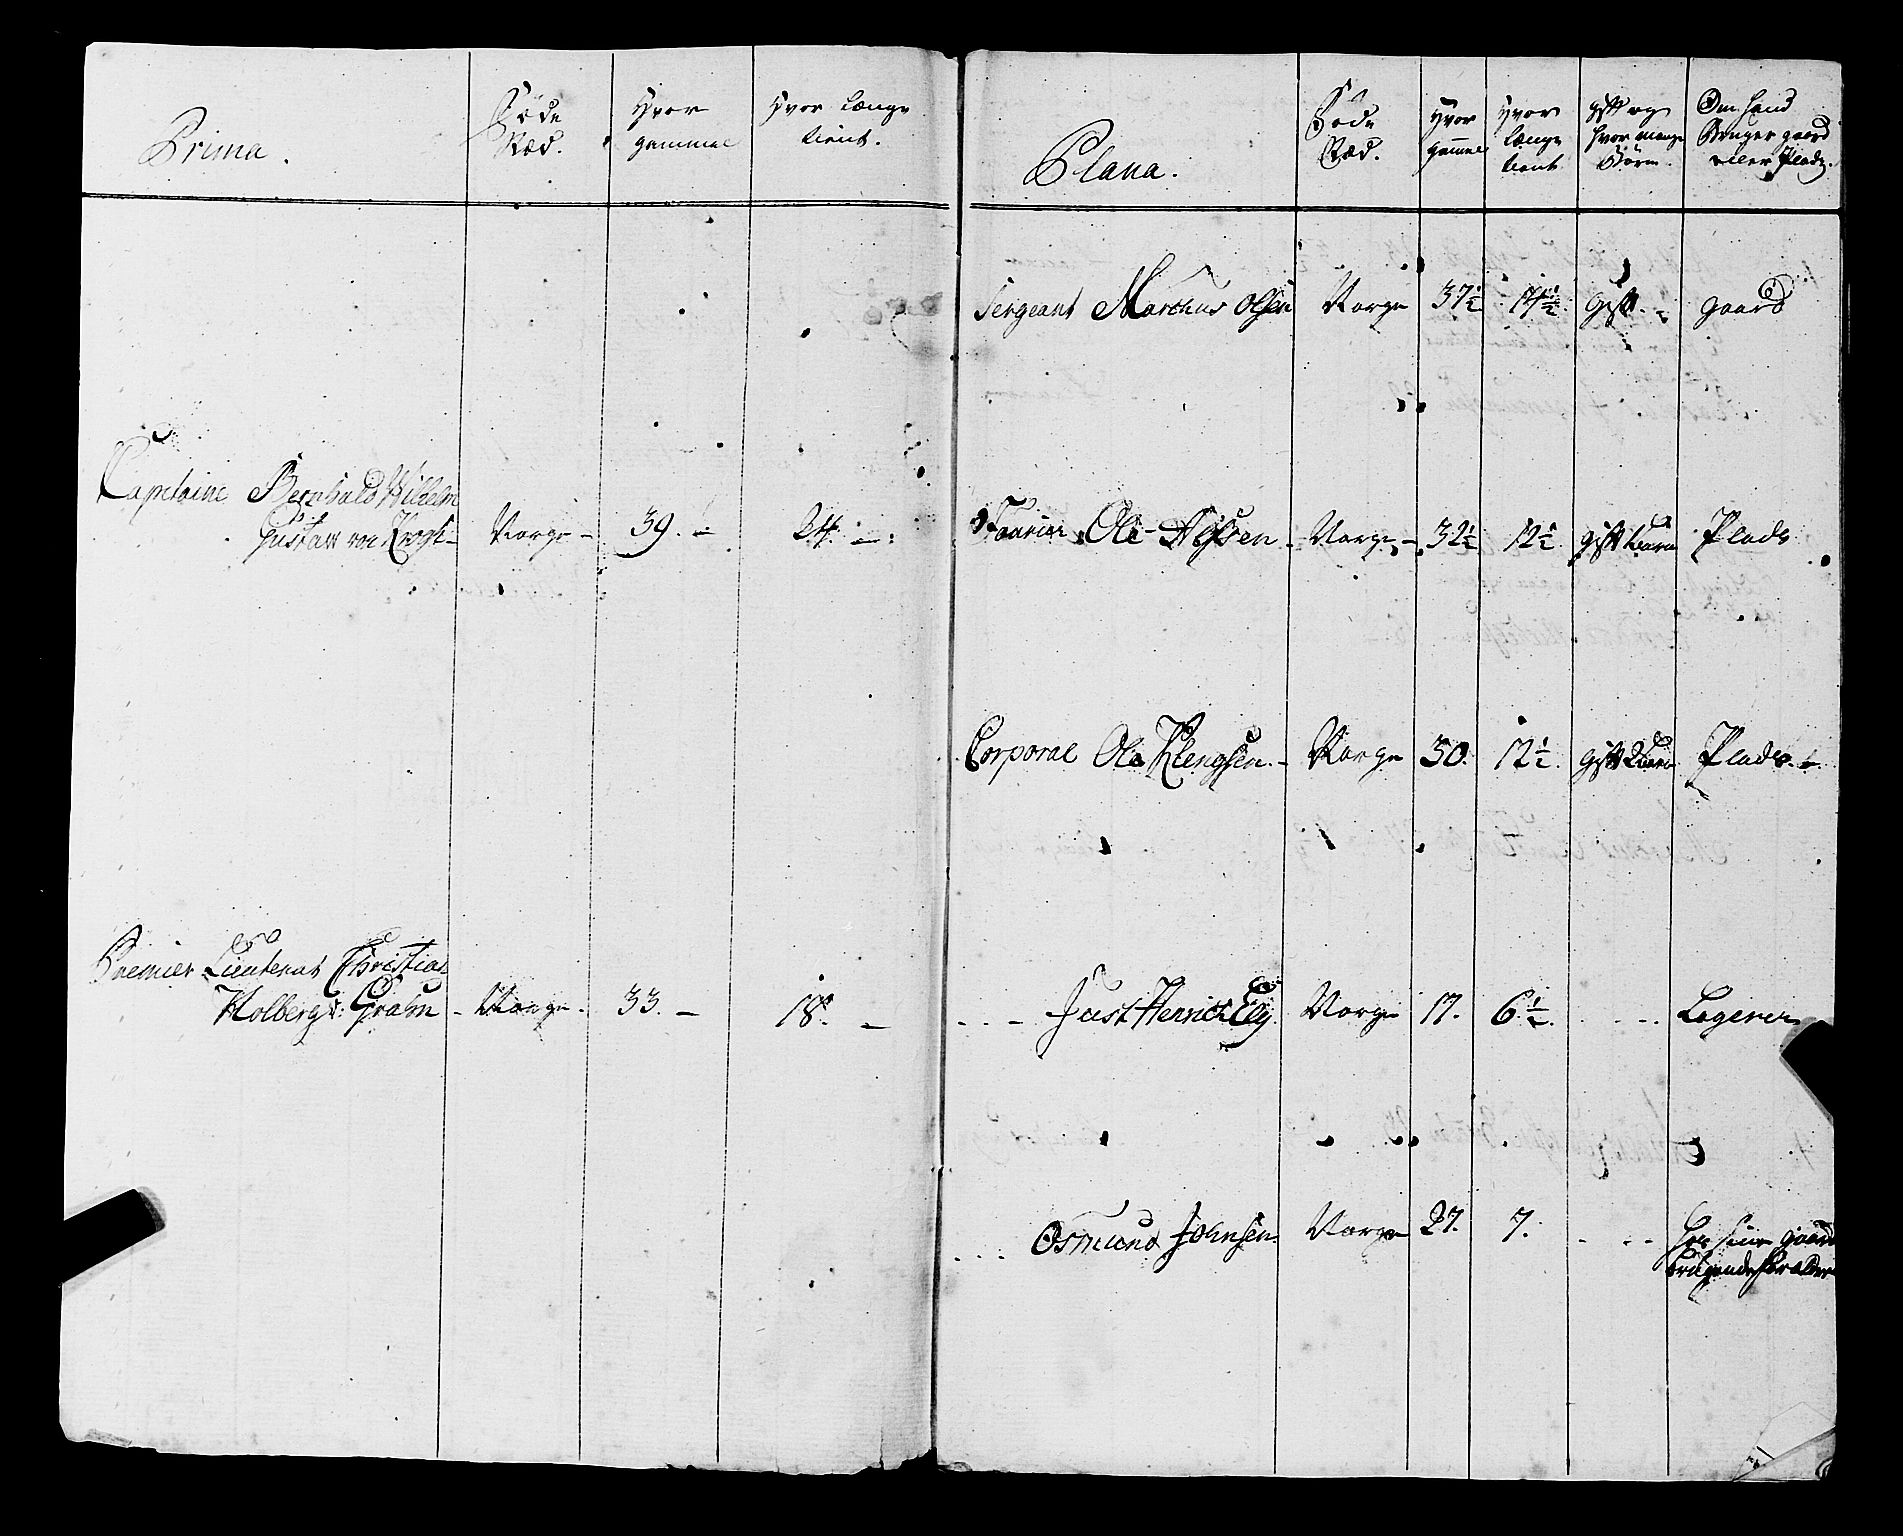 Prima.
Føde Stæd.
Hvor gammel
Hvor længe tient.
Capitaine Bernhald Wilhelm
Gustaw von Krogh - Norge - 39. - 24. -
Premier Lieutenant Christian
Holberg Grahm - Norge. 33. - 18. -
Plana.
Føde Stæd.
Hvor gammel
Hvor længe tient
gift og hvor mange Børn.
Om hand Bruger gaard eller Plads.
Sergeant Marchus Olsen Norge 37½ 14½ Gift. - gaard
Fourier Ole Nilsen - Norge - 32½ 12½ gift Plads
Corporal Ole Klengsen. - Norge 30. 12½ gift Plads. -
- - - Just Henrich Norge 17. 6½. - - - Logerer
- - - Osmund Johnsen Norge 27. 7. - - - hos sine gaard
brugende forældre